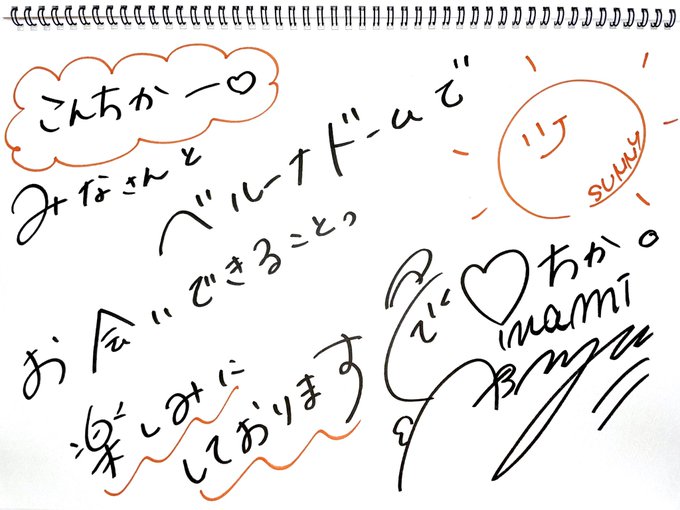 こんちかー♡
みなさんと
ベルーナドームで
お会いできること、
楽しみに
しております
SUNNY
で♡ちか。
inami
Anju